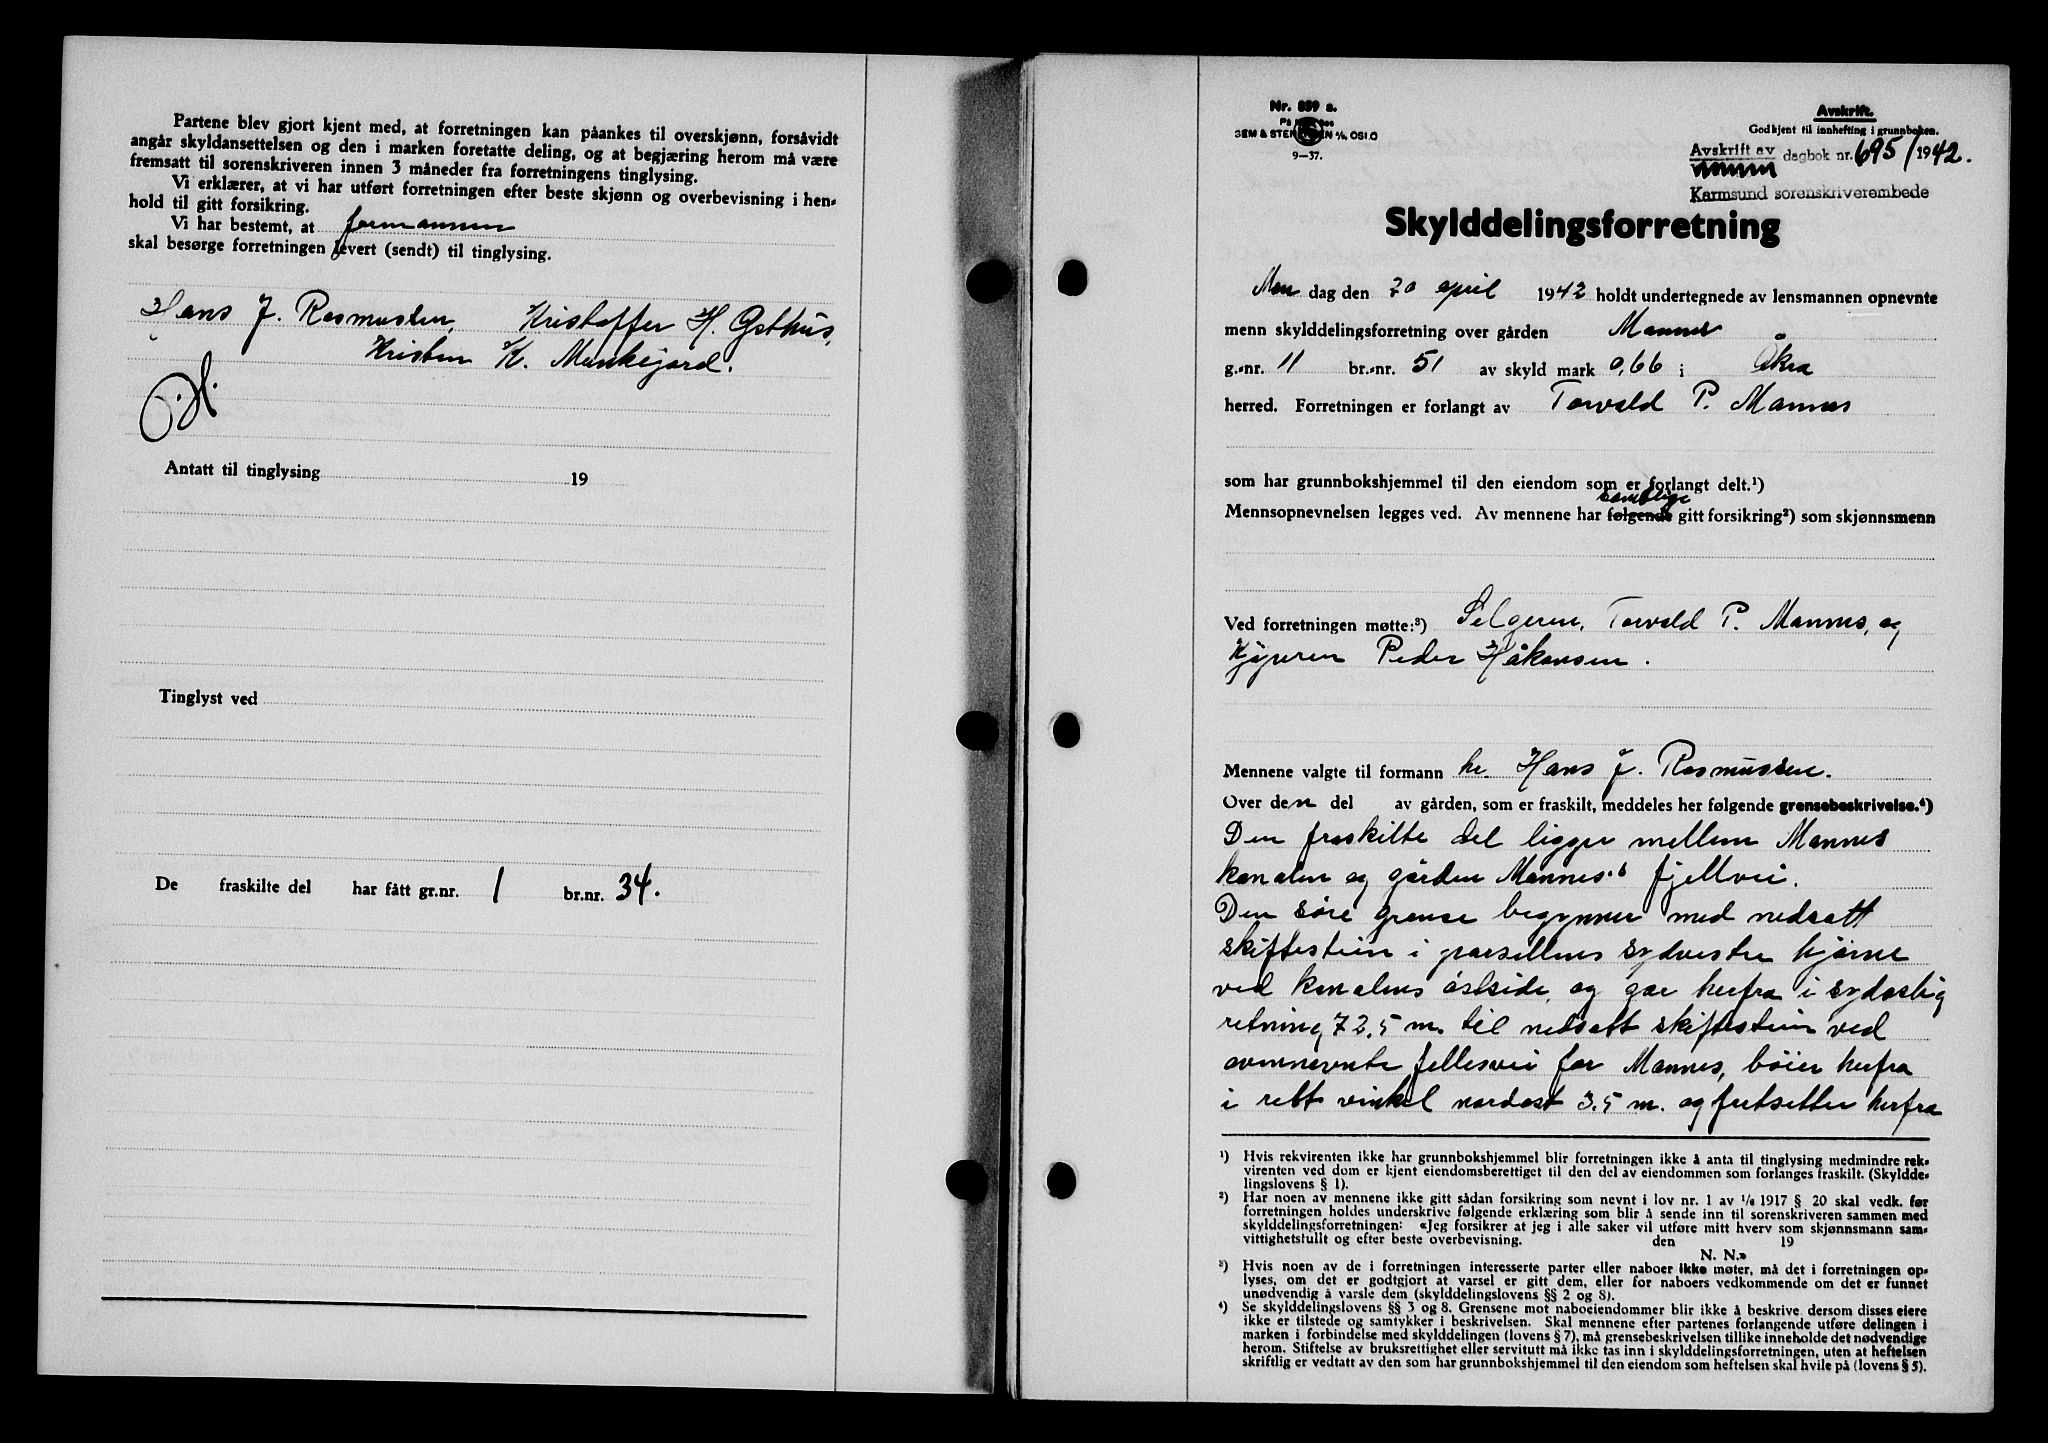 Partene blev gjort kjent med, at forretningen kan påankes til overskjønn, forsåvidt
angår skyldansettelsen og den i marken foretatte deling, og at begjæring herom må være
fremsatt til sorenskriveren innen 3 måneder fra forretningens tinglysing.
Vi erklærer, at vi har utført forretningen efter beste skjønn og overbevisning i hen-
hold til gitt forsikring.
Vi har bestemt, at formannen
skal besørge forretningen levert (sendt) til tinglysing.
Hans J. Rasmussen, Kristoffer H. Østhus,
Kristen K. Munkejord.
Antatt til tinglysing 19
Tinglyst ved
De fraskilte del har fått gr.nr. 1 br.nr. 34.
Nr. 859 a.
SEM & STENERSEN A/S, OSLO
9-37.
Avskrift.
Godkjent til innhefting i grunnboken.
Avskrift av dagbok nr. 695/1942.
Karmsund sorenskriverembede
Skylddelingsforretning
Man dag den 20 april 1942 holdt undertegnede av lensmannen opnevnte
menn skylddelingsforretning over gården Mannes
g.-nr. 11 br.-nr. 51 av skyld mark 0,66 i Åkra
herred. Forretningen er forlangt av Torvald P. Mannes
som har grunnbokshjemmel til den eiendom som er forlangt delt.¹)
samtlige
Mennsopnevnelsen legges ved. Av mennene har følgende gitt forsikring²) som skjønnsmenn
Ved forretningen møtte:³) Selgeren, Torvald P. Mannes, og
Kjøperen Peder Håkonsen.
Mennene valgte til formann hr. Hans J. Rasmussen.
Over den del av gården, som er fraskilt, meddeles her følgende grensebeskrivelse.⁴)
Den fraskilte del ligger mellem Mannes
kanalen og gården Mannes's fjellvei.
Den søre grense begynner med nedsatt
skiftestein i parsellens sydvestre hjørne
ved kanalens østside, og går herfra i sydøstlig
retning 72,5 m. til nedsatt skiftestein ved
ovennevnte fellesvei for Mannes, bøier herfra
i rett vinkel nordøst 3,5 m. og fortsetter herfra
¹) Hvis rekvirenten ikke har grunnbokshjemmel blir forretningen ikke å anta til tinglysing medmindre rek-
virenten ved dom er kjent eiendomsberettiget til den del av eiendommen som forlanges fraskilt. (Skyldde-
lingslovens § 1).
²) Har noen av mennene ikke gitt sådan forsikring som nevnt i lov nr. 1 av 1/6 1917 § 20 skal vedk. før
forretningen holdes underskrive følgende erklæring som blir å sende inn til sorenskriveren sammen med
skylddelingsforretningen: «Jeg forsikrer at jeg i alle saker vil utføre mitt hverv som skjønnsmann sam-
vittighetsfullt og efter beste overbevisning. den 19
N. N.»
³) Hvis noen av de i forretningen interesserte parter eller naboer ikke møter, må det i forretningen op-
lyses, om det er godtgjort at varsel er gitt dem, eller for naboers vedkommende om det er funnet
unødvendig å varsle dem (skylddelingslovens §§ 2 og 8).
⁴) Se skylddelingslovens §§ 3 og 8. Grensene mot naboeiendommer blir ikke å beskrive dersom disses eiere
ikke er tilstede og samtykker i beskrivelsen. Skal mennene efter partenes forlangende utføre delingen i
marken i forbindelse med skylddelingen (lovens § 7), må grensebeskrivelsen tillike inneholde det nødvendige
herom. Stiftelse av bruksrettighet eller servitutt må ikke tas inn i skylddelingsforretningen, uten at heftelsen
skriftlig er vedtatt av den som har grunnbokshjemmel til den eiendom som heftelsen skal hvile på (lovens § 5).